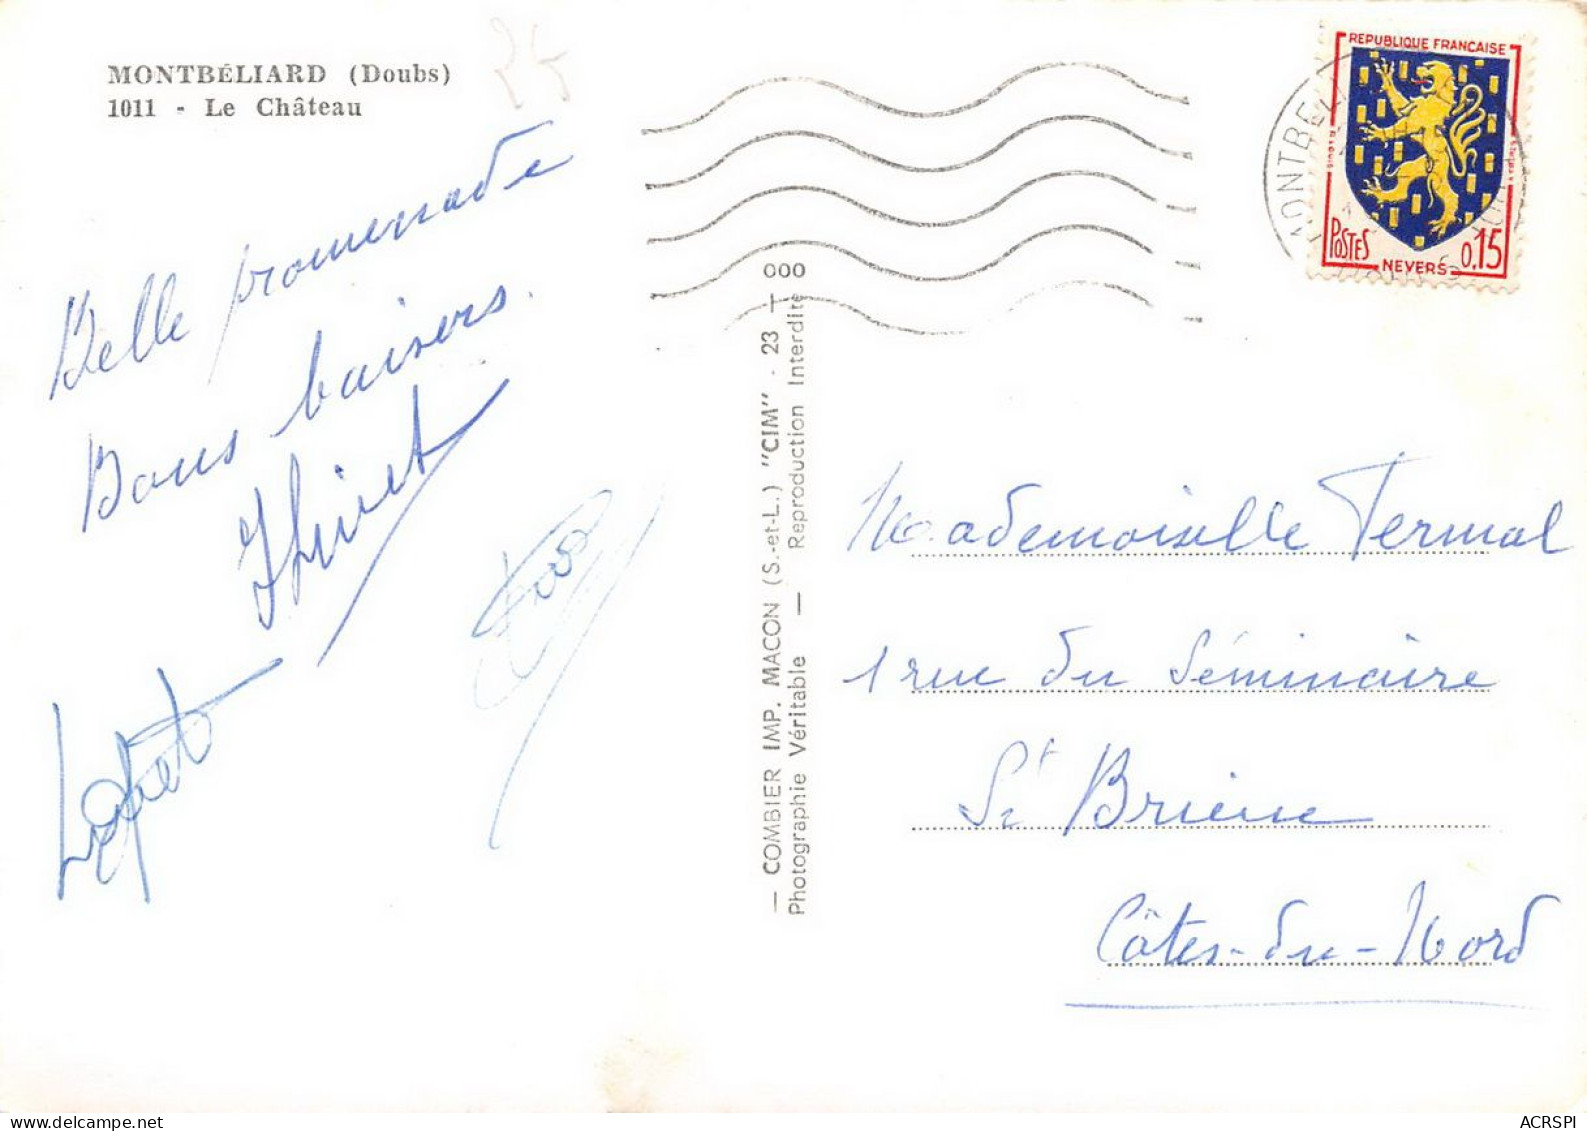 MONTBÉLIARD (Doubs)
1011 - Le Château
25
Belle promenade
Bons baisers.
Thiriet
— COMBIER IMP. MACON (S.-et-L.) "CIM" - 23 —
Photographie Véritable — Reproduction Interdite
000
REPUBLIQUE FRANCAISE
POSTES
NEVERS
0,15
Mademoiselle Termal
1 rue du Séminaire
St Brieuc
Côtes-du-Nord
delcampe.net
ACRSPI